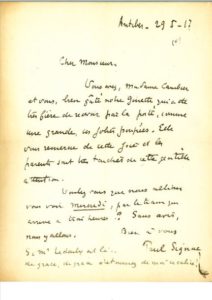 Antibes - 29-5-17
Cher Monsieur.
Vous avez, Madame Cambier
et vous, bien gâté notre Ginette qui a été
très fière de recevoir par la poste, comme
une grande, ces jolies poupées. Elle
vous remercie de cette joie et les
parents sont très touchés de cette gentille
attention.
Voulez vous que nous allions
vous voir mercredi, par le train qui
arrive à heures ? Sans avis,
nous y allons.
Bien à vous
Paul Signac
Si Mr est là
de grâce,